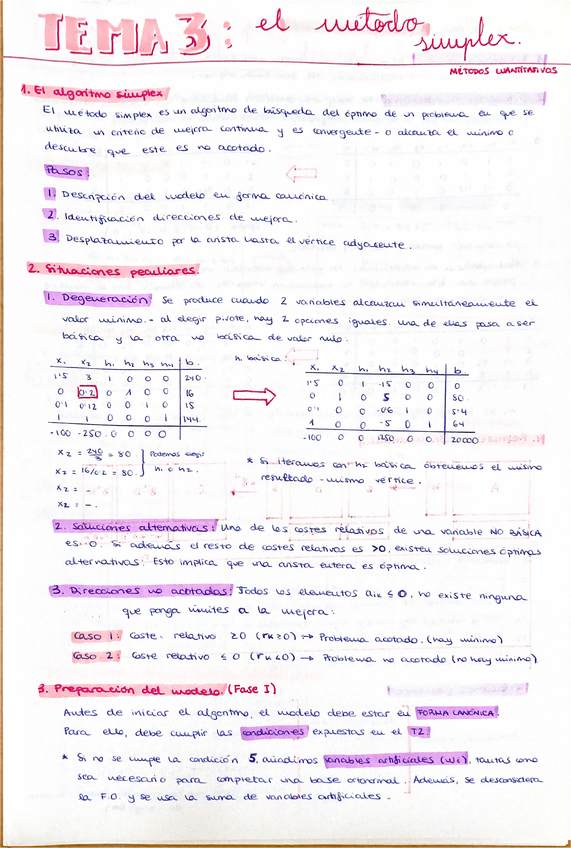 TEMA 3: el método simplex.
MÉTODOS CUANTITATIVOS
1. El algoritmo simplex
El método simplex es un algoritmo de búsqueda del óptimo de un problema en que se
utiliza un criterio de mejora continua y es convergente - o alcanza el mínimo o
descubre que este es no acotado.
Pasos:
1. Descripción del modelo en forma canónica.
2. Identificación direcciones de mejora.
3. Desplazamiento por la arista hasta el vértice adyacente.
2. Situaciones peculiares.
1. Degeneración: Se produce cuando 2 variables alcanzan simultáneamente el
valor mínimo. - al elegir pivote, hay 2 opciones iguales. Una de ellas pasa a ser
básica y la otra no básica de valor nulo.
h, básica:
x₁ x₂ h₁ h₂ h₃ h₄ b.
1'5 3 1 0 0 0 240.
0 0'2 0 1 0 0 16
0'1 0'12 0 0 1 0 15
1 1 0 0 0 1 144.
-100 -250. 0 0 0 0
x₁ x₂ h₁ h₂ h₃ h₄ b
1'5 0 1 -15 0 0 0
0 1 0 5 0 0 80.
0'1 0 0 -0'6 1 0 5'4
1 0 0 -5 0 1 64
-100 0 0 1250 0 0 20000
x₂ = 240/3 = 80. Podemos elegir
x₂ = 16/0'2 = 80. h₁ o h₂.
x₂ = -
x₂ = -.
* Si iteramos con h₂ básica obtenemos el mismo
resultado - mismo vértice.
2. Soluciones alternativas: Uno de los costes relativos de una variable NO BÁSICA
es 0. Si además el resto de costes relativos es >0, existen soluciones óptimas
alternativas. Esto implica que una arista entera es óptima.
3. Direcciones no acotadas: Todos los elementos aᵢₖ ≤ 0, no existe ninguna
que ponga límites a la mejora:
Caso 1: Coste relativo ≥0 (rₖ≥0) → Problema acotado. (hay mínimo)
Caso 2: Coste relativo ≤ 0 (rₖ<0) → Problema no acotado (no hay mínimo)
3. Preparación del modelo. (Fase I)
Antes de iniciar el algoritmo, el modelo debe estar en FORMA CANÓNICA.
Para ello, debe cumplir las condiciones expuestas en el T2.
* Si no se cumple la condición 5, añadimos variables artificiales (Wi), tantas como
sea necesario para completar una base ortonormal. Además, se desconsidera
la F.O. y se usa la suma de variables artificiales.